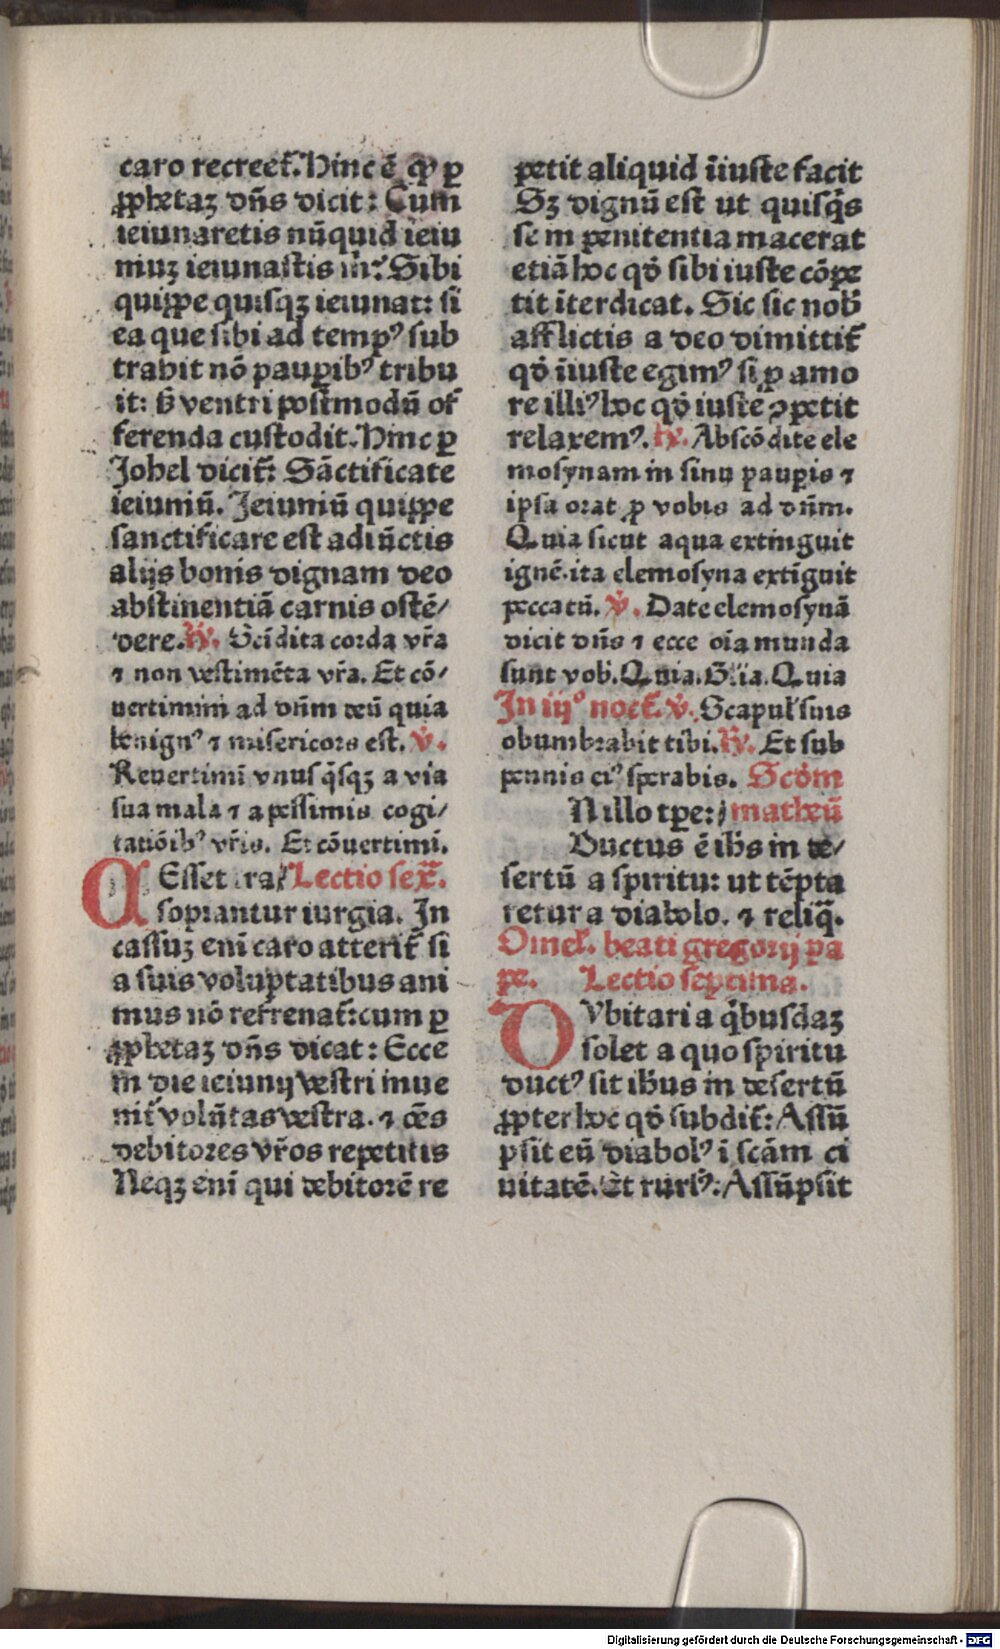 caro recreet᷑. Hinc ē ꝙ ꝑ
ꝓphetaꝫ dn̄s dicit: Cum
ieiunaretis nūquid ieiu
niuꝫ ieiunastis m̄: Sibi
quippe quisqꝫ ieiunat: si
ea que sibi ad tempꝰ sub
trahit nō pauꝑibꝰ tribu
it: sꝫ ventri postmodū of
ferenda custodit. Hinc ꝑ
Johel dicit᷑: Sāctificate
ieiuniū. Jeiuniū quippe
sanctificare est adiūctis
alijs bonis dignam deo
abstinentiā carnis ostē/
dere. ℟. Scīdita corda vr̄a
⁊ non vestimēta vr̄a. Et cō/
uertimini ad dn̄m deū quia
benignꝰ ⁊ misericors est. ℣.
Reuertimī vnusqͥsqꝫ a via
sua mala ⁊ a pessimis cogi/
tatiōibꝰ vr̄is. Et cōuertimī.
Esset ira/ Lectio sex̄.
A sopiantur iurgia. In
cassuꝫ enī caro atterit᷑ si
a suis voluptatibus ani
mus nō refrenat᷑: cum ꝑ
ꝓphetaꝫ dn̄s dicat: Ecce
in die ieiunij vestri inue
nit᷑ volūtas vestra. ⁊ oēs
debitores vr̄os repetitis
Neqꝫ enī qui debitorē re
petit aliquid īiuste facit
Sꝫ dignū est ut quisqͥs
se in penitentia macerat
etiā hoc qd̓ sibi iuste cōpe
tit īterdicat. Sic sic nob̓
afflictis a deo dimittit᷑
qd̓ īiuste egimꝰ si ꝑ amo
re illiꝰ hoc qd̓ iuste ꝯpetit
relaxemꝰ. ℟. Abscōdite ele
mosynam in sinu pauꝑis ⁊
ipsa orat ꝓ vobis ad dn̄m.
Quia sicut aqua extinguit
ignē. ita elemosyna extīguit
peccatū. ℣. Date elemosynā
dicit dn̄s ⁊ ecce oīa munda
sunt vob̓. Quia. Gl̓ia. Quia
In iijº noct᷑. ℣. Scapul̓ suis
obumbrabit tibi. ℟. Et sub
pennis eiꝰ sperabis. Scd̓m
N illo tꝑe: matheū
Ductus ē ih̄s in de/
sertū a spiritu: ut tēpta
retur a diabolo. ⁊ reliq̄.
Omel̓. beati gregorij pa
pe. Lectio septima.
DVbitari a qͥbusdaꝫ
solet a quo spiritu
ductꝰ sit ih̄us in desertū
ꝓpter hoc qd̓ subdit᷑: Assū
psit eū diabolꝰ ī scām ci
uitatē. Et rursꝰ: Assūpsit
Digitalisierung gefördert durch die Deutsche Forschungsgemeinschaft - DFG